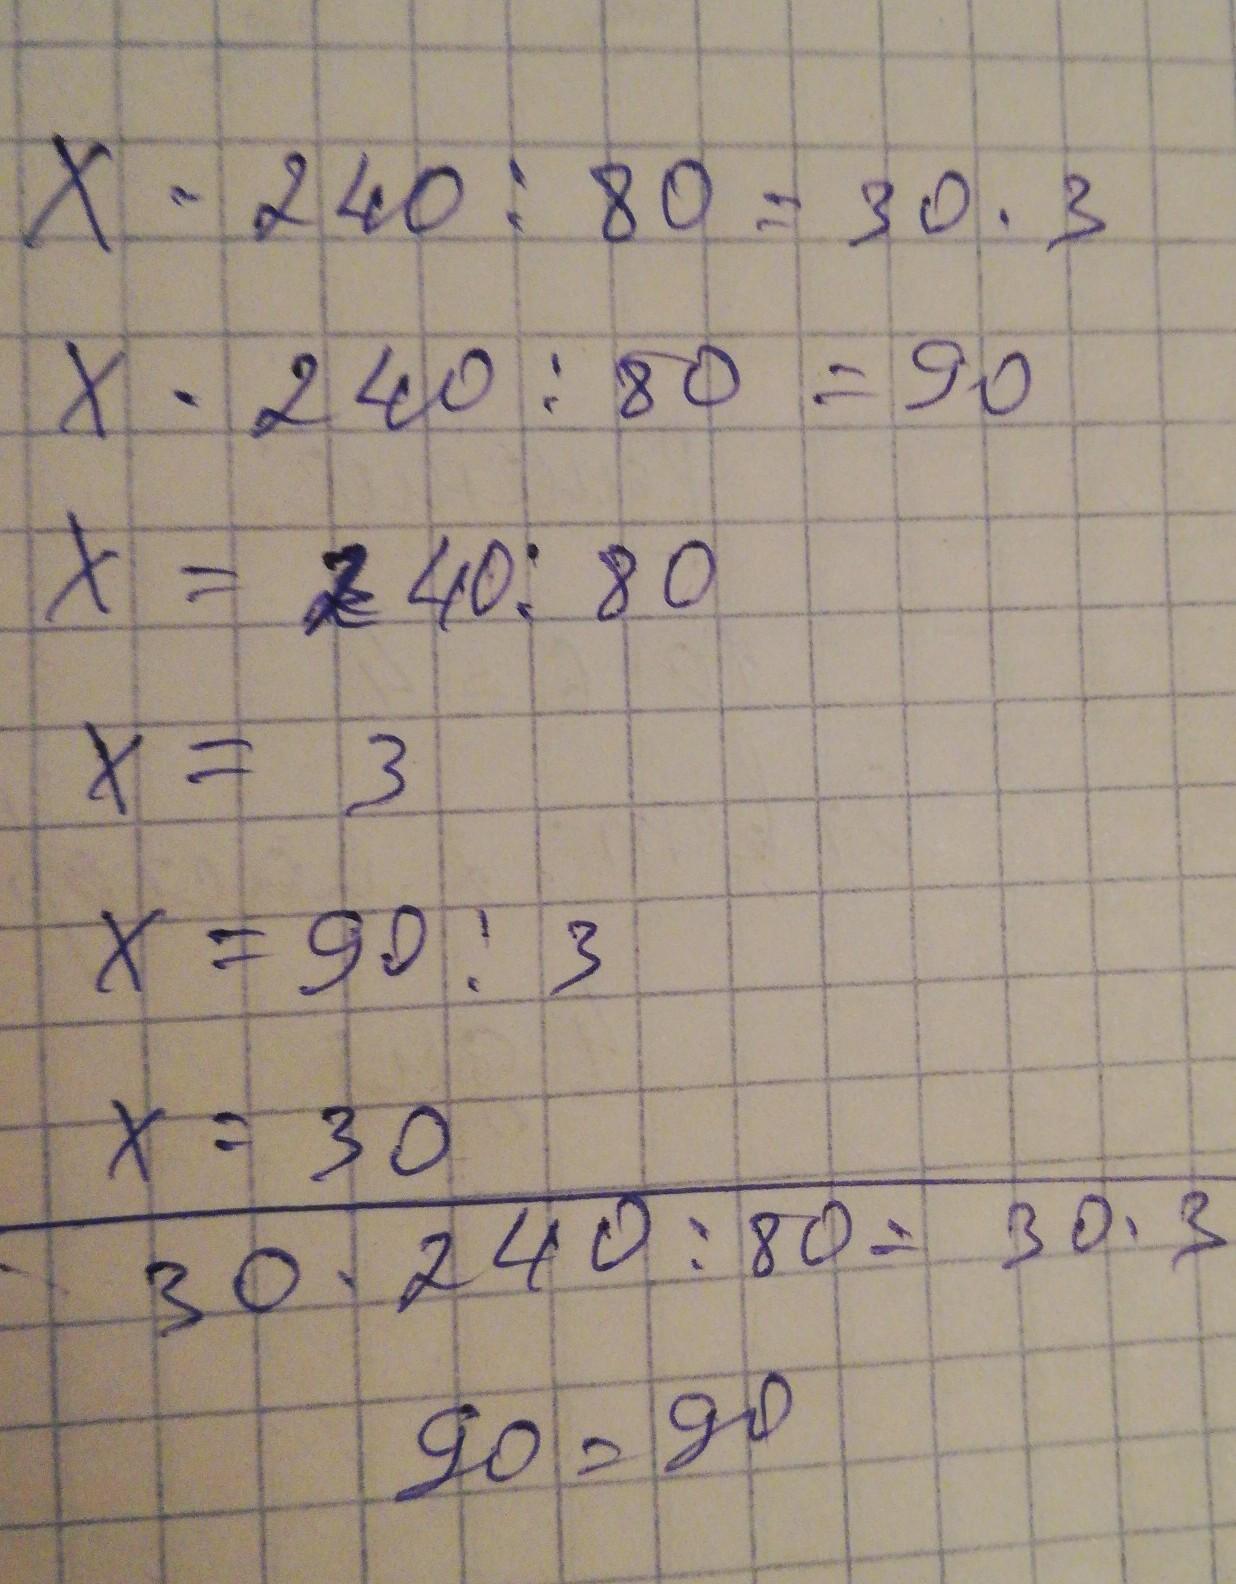 X · 240 : 80 = 30 · 3
X · 240 : 80 = 90
X = 240 : 80
X = 3
X = 90 : 3
X = 30
30 · 240 : 80 = 30 · 3
90 = 90